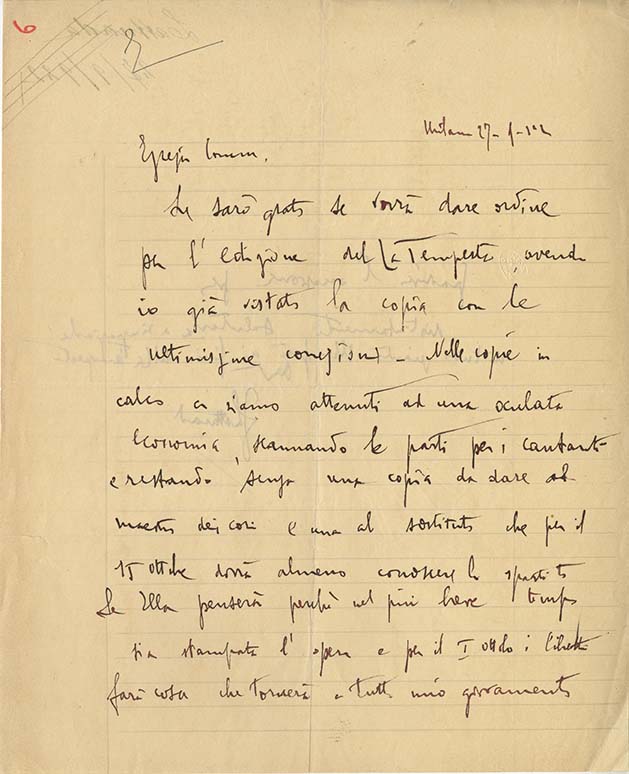 6
Milano 27-
Egregio Comm.
Le sarò grato se vorrà dare ordine
per l'edizione del La Tempesta, avendo
io già vistato la copia con le
ultimissime correzioni - Nelle copie in
calco ci siamo attenuti ad una oculata
economia, scannando le parti per i cantanti
e restando senza una copia da dare al
maestro dei cori e una al sostituto che per il
15 ottobre dovrà almeno conoscere lo spartito
Se Ella penserà perché nel più breve tempo
sia stampata l'opera e per il I i libretti
farà cosa che tornerà a tutto mio giovamento